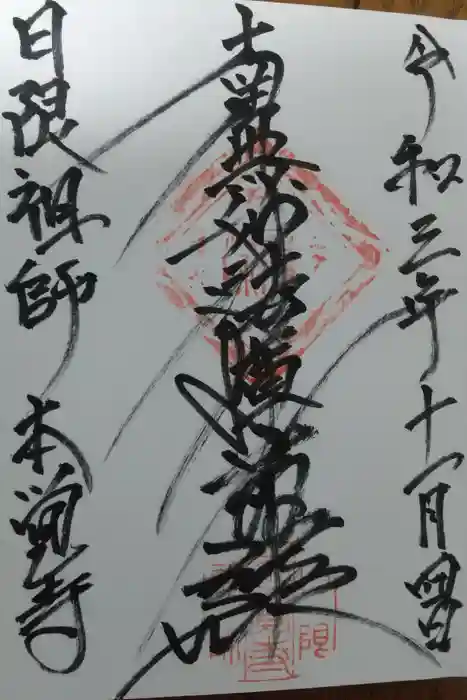 令和三年十一月四日
南無妙法蓮華経
日限祖師 本覚寺